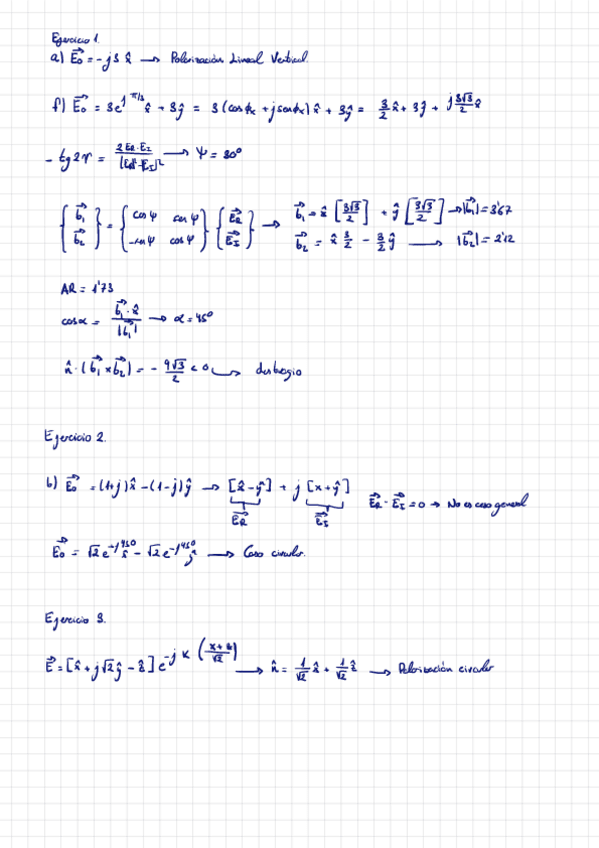 Ejercicio 1.
a) E₀ = -j3 x̂ → Polarización Lineal Vertical.
f) E₀ = 3e^{jπ/3} x̂ + 3ŷ = 3(cosϕₓ + jsenϕₓ) x̂ + 3ŷ = 3/2 x̂ + 3ŷ + j 3√3/2 x̂
- tg2ψ = → ψ = 30°
{b₁ b₂} = {cosψ senψ -senψ cosψ} {E_R E_I} → b₁ = x̂ [3√3/2] + ŷ [3√3/2] → |b₁| = 3'67
b₂ = x̂ 3/2 - 3/2 ŷ → |b₂| = 2'12
AR = 1'73
cosα = b₁·x̂ / |b₁| → α = 45°
n̂ · (b₁ × b₂) = - 9√3/2 < 0 →
Ejercicio 2.
b) E₀ = (1+j)x̂ - (1-j)ŷ → [x̂ - ŷ] + j [x + ŷ] E_R · E_I = 0 → No es caso general
E_R E_I
E₀ = √2 e^{-j45°} x̂ - √2 e^{-j45°} ŷ → Caso circular.
Ejercicio 3.
E = [x̂ + j√2 ŷ - ẑ] e^{-jK((x+z)/√2)} → n̂ = 1/√2 x̂ + 1/√2 ẑ → Polarización circular